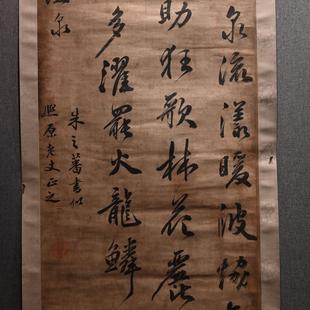 泉流漾暖波協
助狂歌林花麗
多濯罷火龍鱗
泉
朱之蕃書似
熙原老丈正之